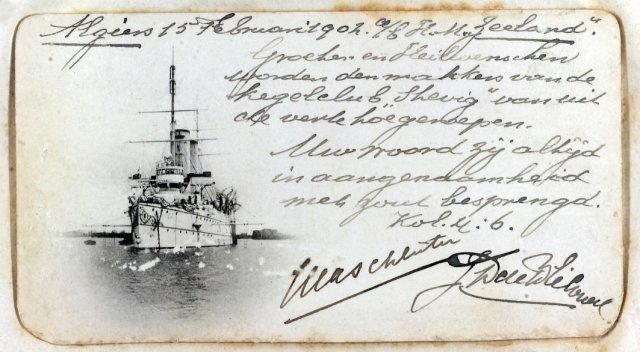 Algiers 15 Februari 1902. a/b H. M. „Zeeland".
Groeten en Heilwenschen
worden den makkers van de
kegelclub „Stevig" van uit
de verte toegeroepen.
Uw woord zij altijd
in aangenaamheid
met zout besprengd.
Kol. 4:6.